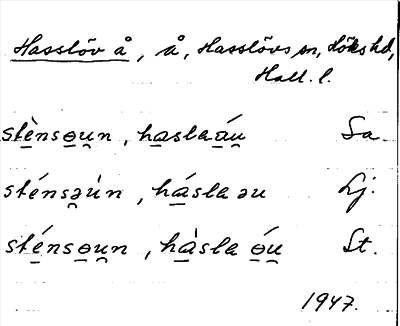 Hasslöv å, å, Hasslövs sn, Höks hd,
Hall. l.
stènsəu̯n, haslaəú̯ Sa
sténsəu̯n, háslaəu Lj.
sténsəu̯n, hàsla əú̯ St.
1947.